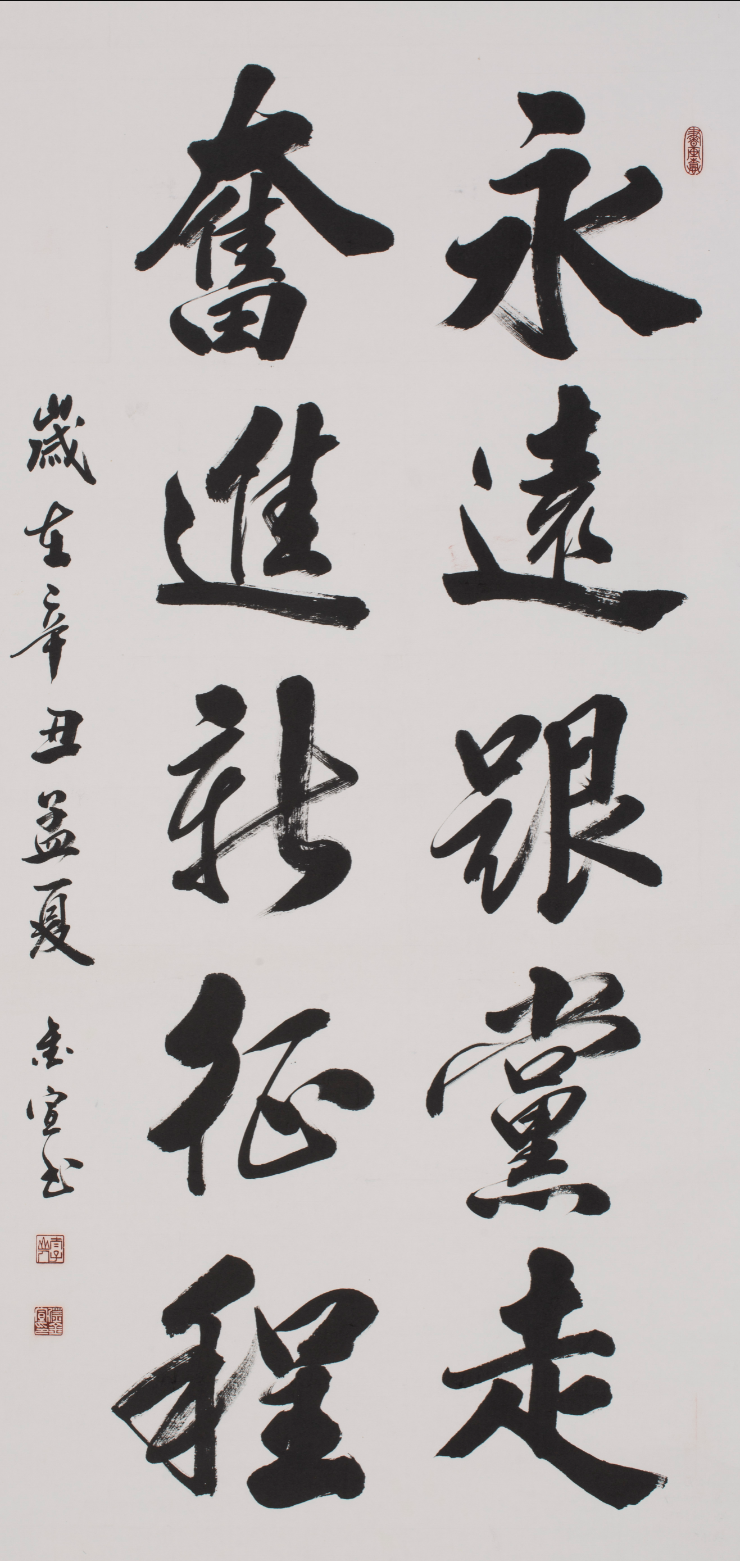 永遠跟黨走
奮進新征程
歲在辛丑孟夏 金宣书